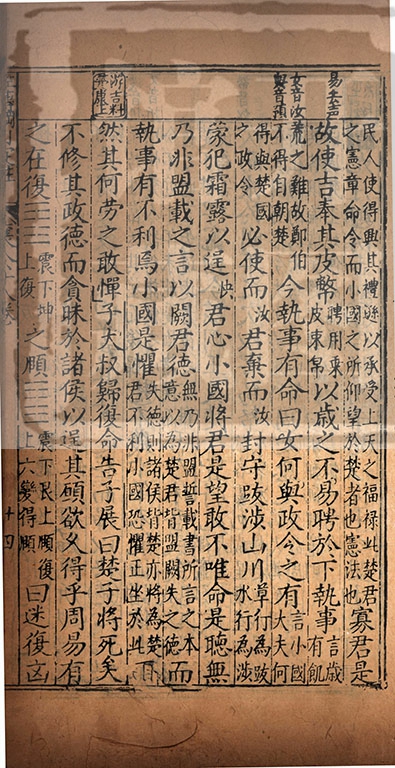 民人使得與其禮遊以承受上天之福禄此楚君
之憲章命令而小國之所仰望於楚者也憲法也
寡君是
易去声
故使吉奉其皮幣
聘用乘
皮束帛
以歲之不易聘於下執事
言歲
有飢
女音汝
與音預
荒之難故鄭伯
不得自朝楚
今執事有命曰女何與政令之有
言小國
大夫何
得與楚國
之政令
必使而汝君棄而汝封守跋涉山川
草行為跋
水行為涉
蒙犯霜露以逞快君心小國將君是望敢不唯命是聽無
乃非盟載之言以闕君德
無乃非盟誓載書所言之本
意以為楚君皆盟闕失之德
而
執事有不利焉小國是懼
失德則諸侯皆楚亦將為楚
君不利小國恐懼正坐於此
不
然其何勞之敢憚子大叔歸復命告子展曰楚子將死矣
不修其政德而貪昧於諸侯以逞其願欲久得乎周易有
之在復䷗
震下坤
上復
之頤䷚
震下艮上頤復
上六變得頤
曰迷復凶
十四